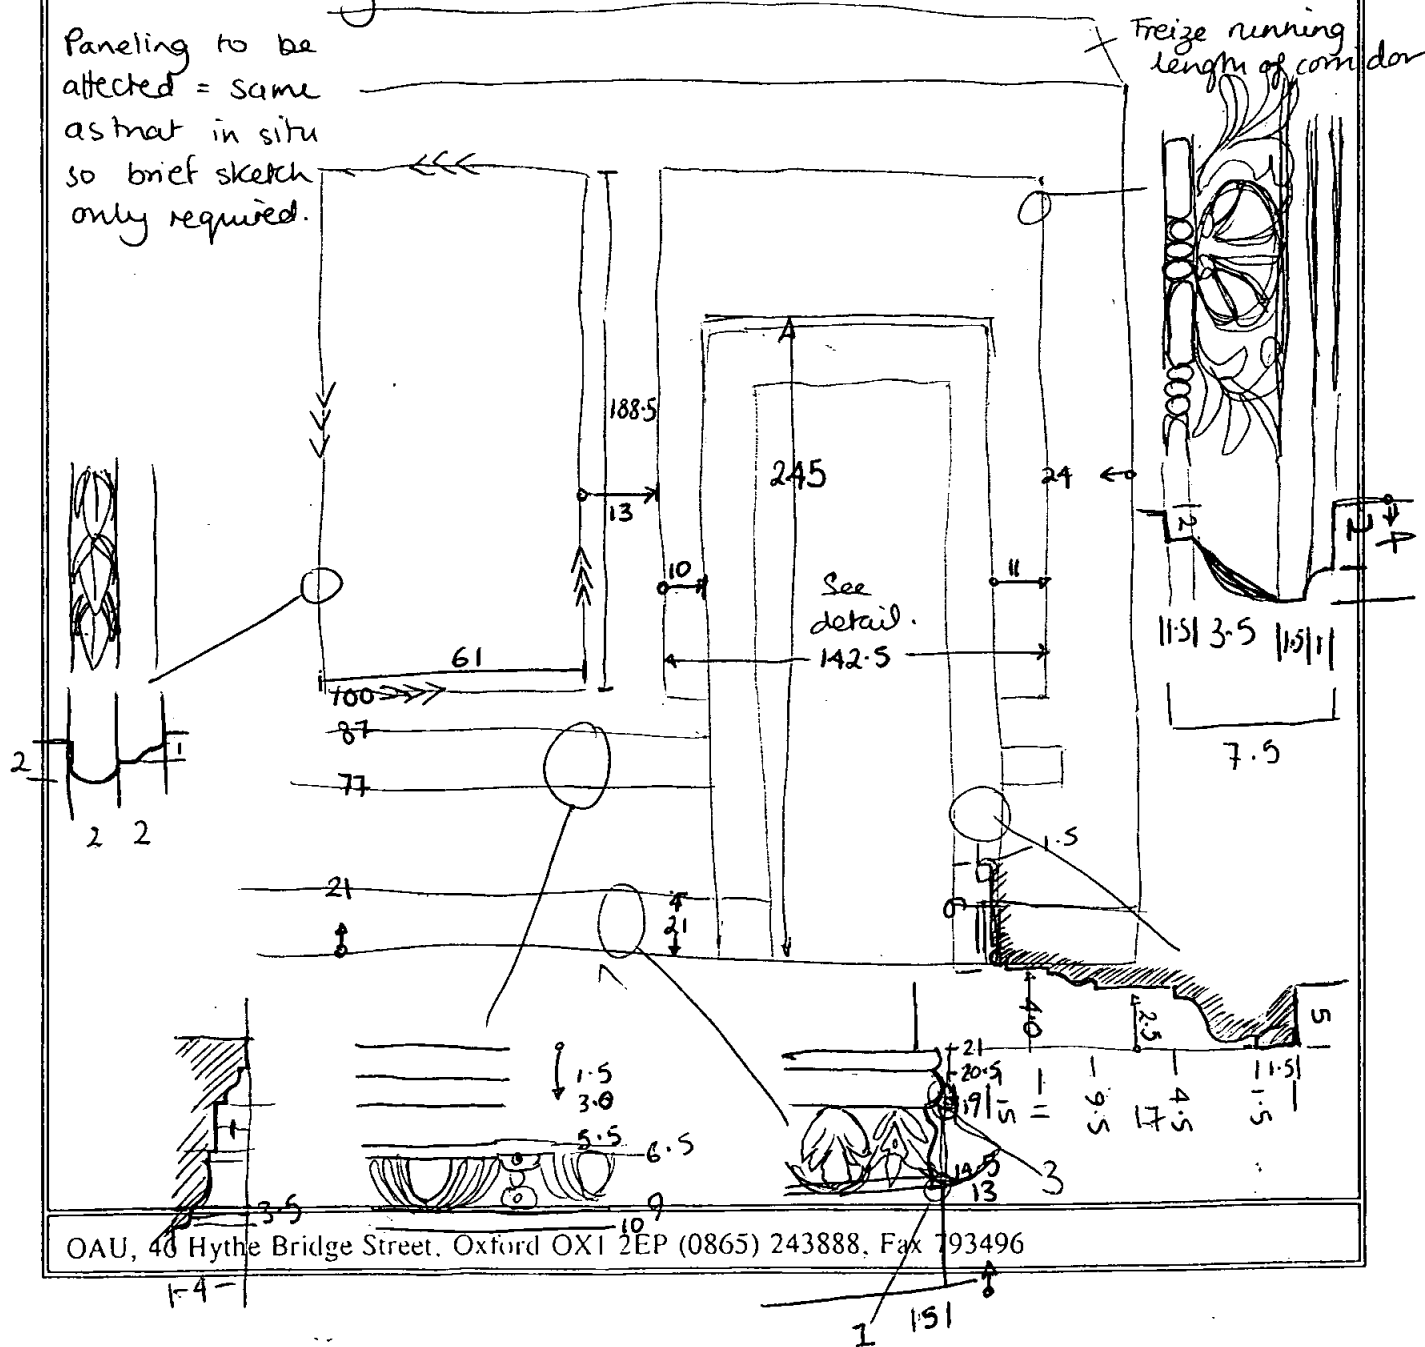 Paneling to be
affected = same
as that in situ
so brief sketch
only required.
Freize running
length of corridor
188.5
13
245
24
10
11
See
detail.
142.5
61
100
87
77
21
21
2
1
2 2
2
2
4
1.5 3.5 1.5 1
7.5
1.5
6
4.0
2.5
5
21
20.5
19
14.5
13
3
1
1.5
11
9.5
17
4.5
1.5
1.5
1.5
3.0
5.5
6.5
9
10
3.5
4
OAU, 46 Hythe Bridge Street, Oxford OX1 2EP (0865) 243888, Fax 793496